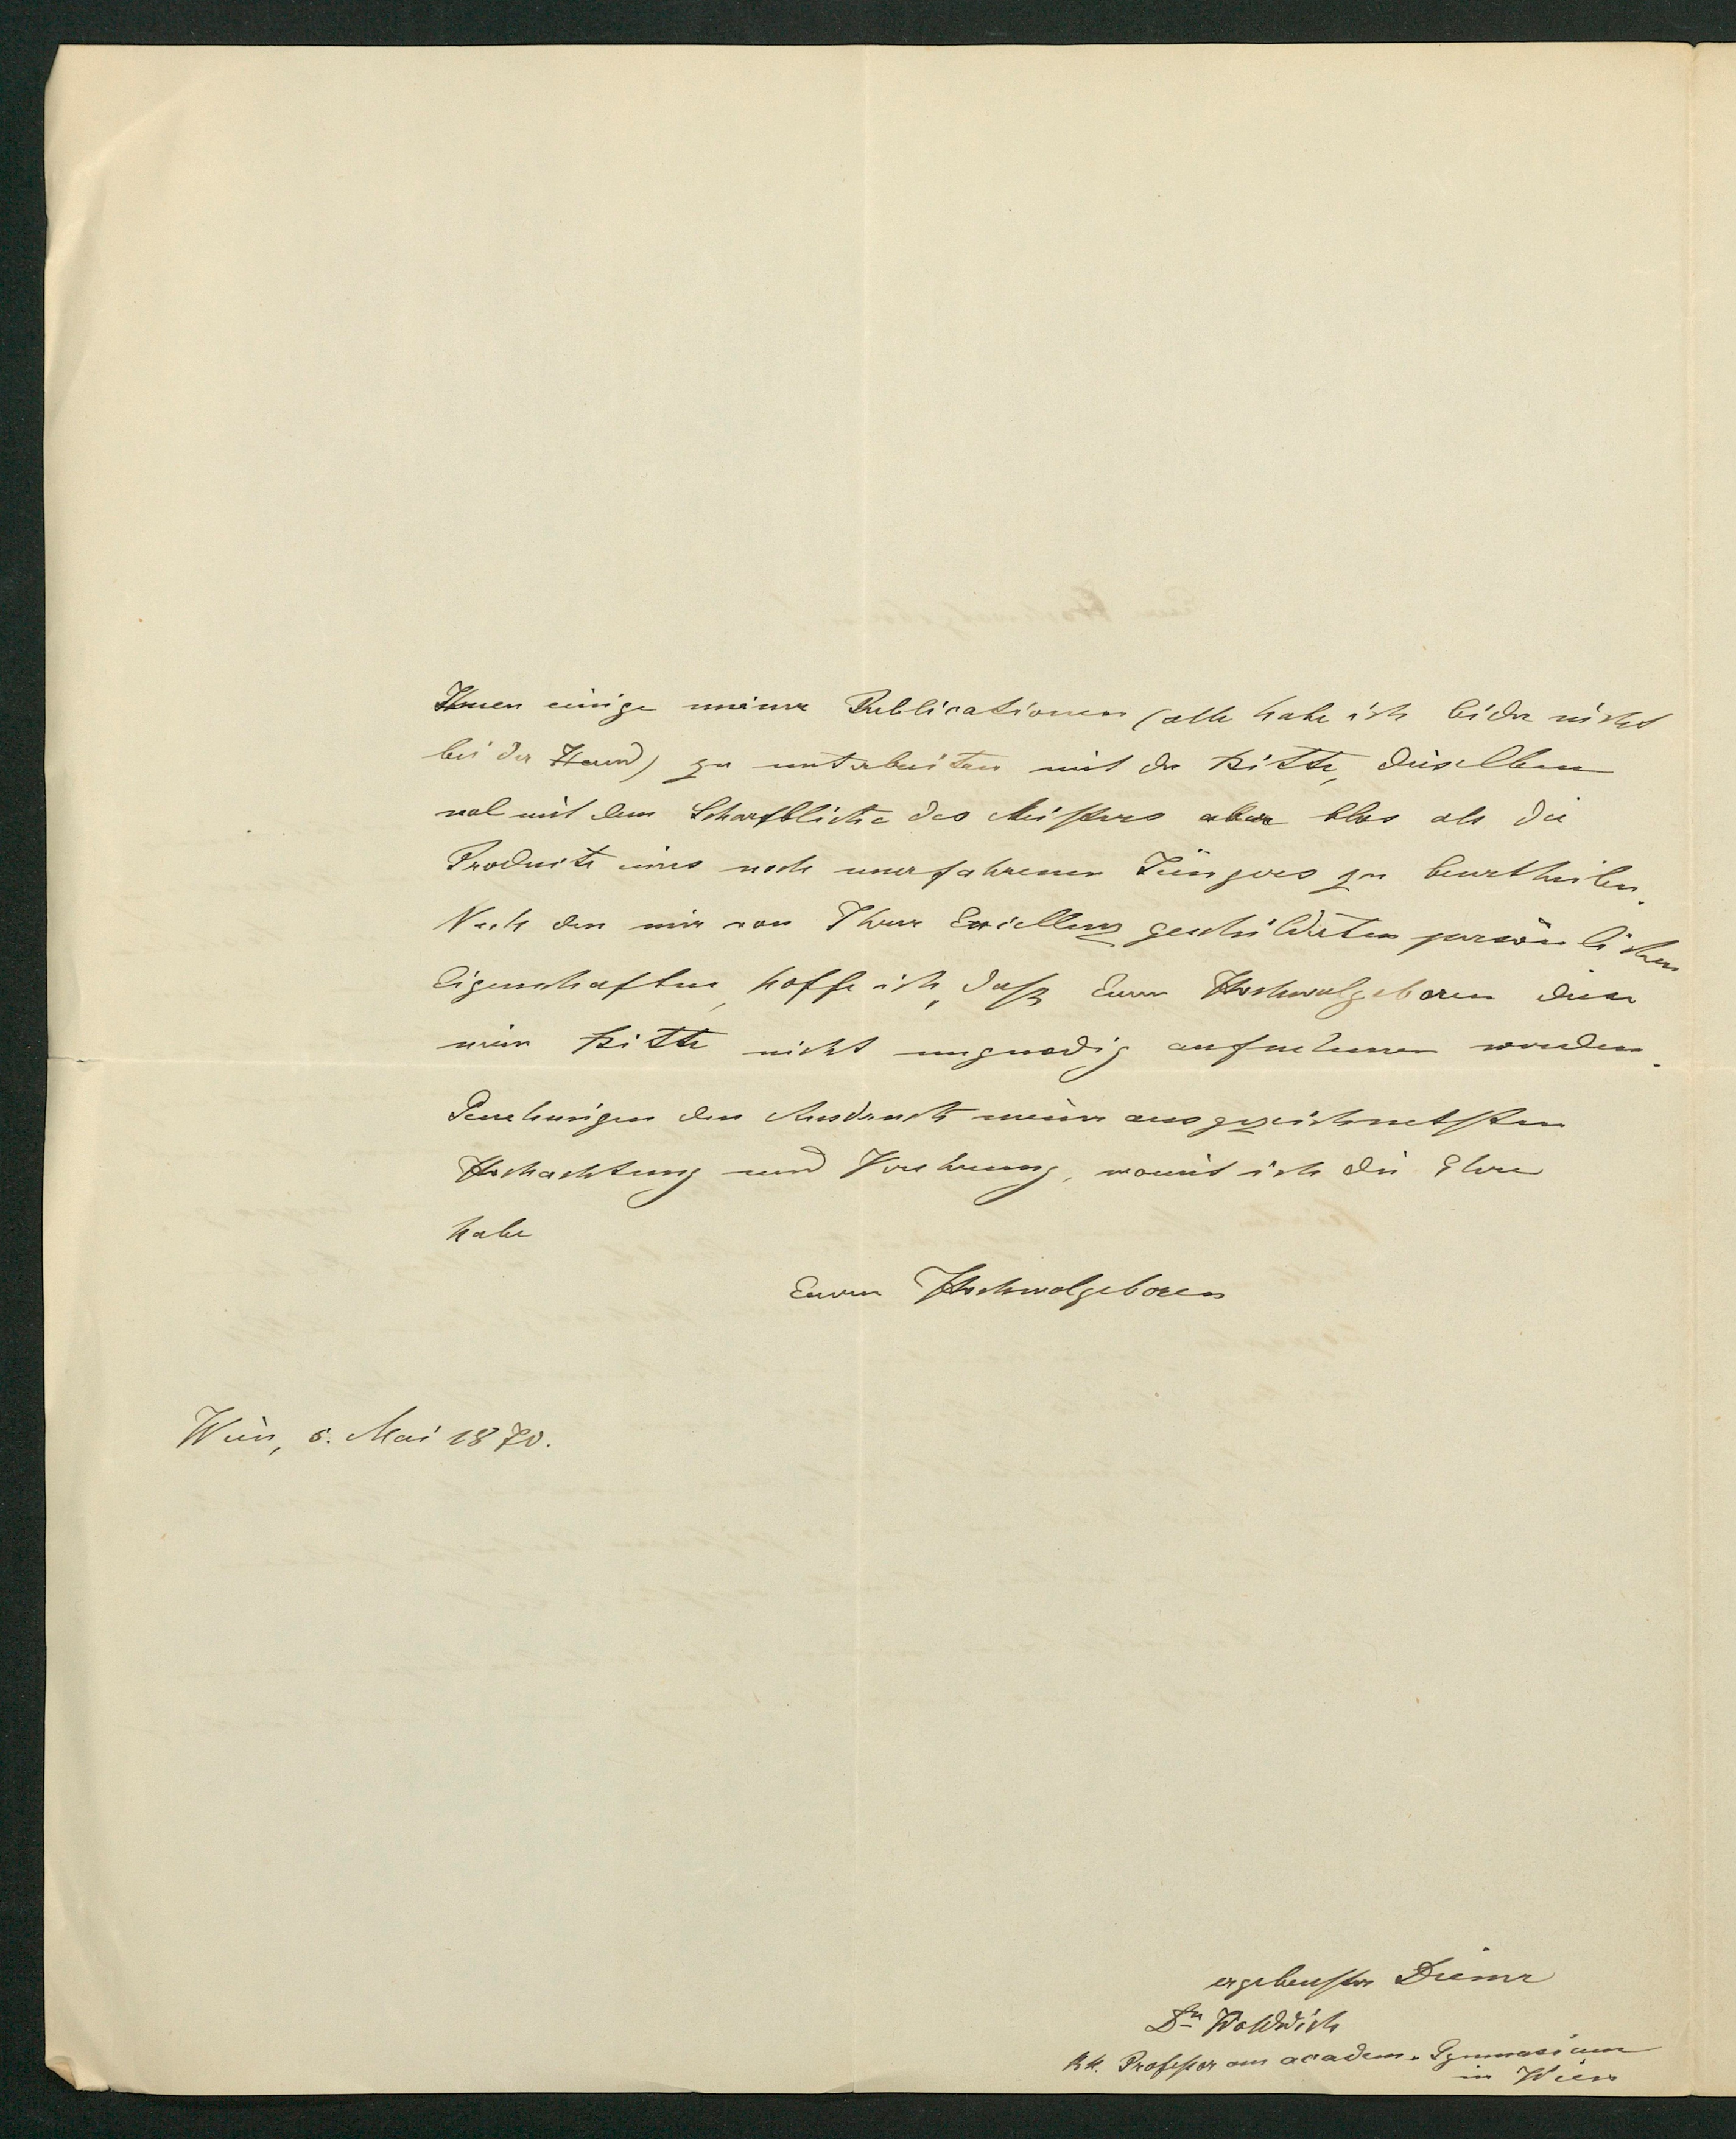 Ihnen einige meiner Publicationen (alle habe ich leider nicht
bei der Hand) zu unterbreiten mit der Bitte, dieselben
wol mit dem Scharfblicke des Meisters aber blos als die
Produkte eines noch unerfahrenen Jüngers zu beurtheilen.
Nach den mir von Ihrer Excellenz geschilderten persönlichen
Eigenschaften, hoffe ich, daß Euer Hochwolgeboren diese
meine Bitte nicht ungnädig aufnehmen werden.
Genehmigen den Ausdruck meiner ausgezeichnetsten
Hochachtung und Verehrung, womit ich die Ehre
habe
Euer Hochwolgeboren
Wien, 5. Mai 1870.
ergebenster Diener
Dr Woldřich
kk. Professor am academ. Gymnasium
in Wien